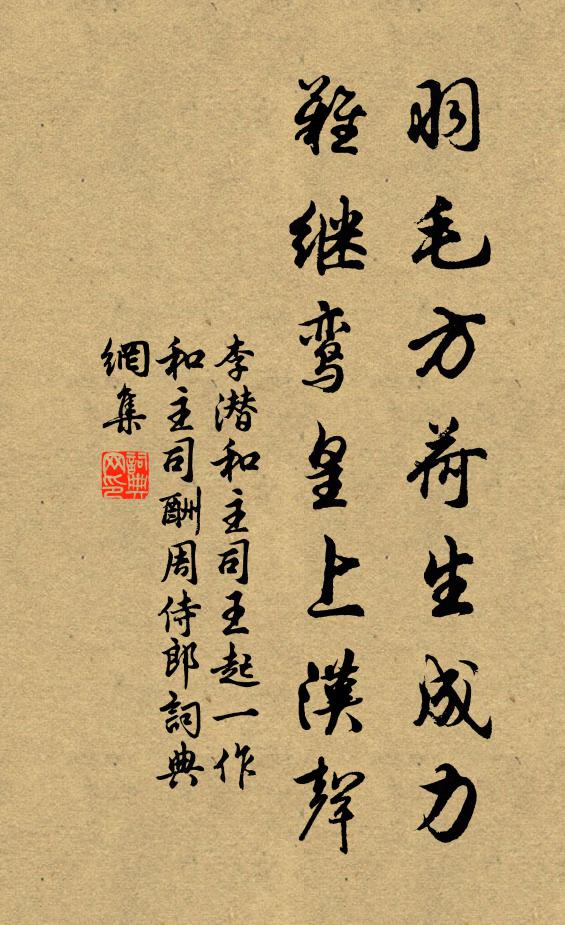 羽毛方荷生成力
難继鸾皇上漢聲
李潜和主司王起一作
和主司酬周侍郎詞典
網集
詞典网印